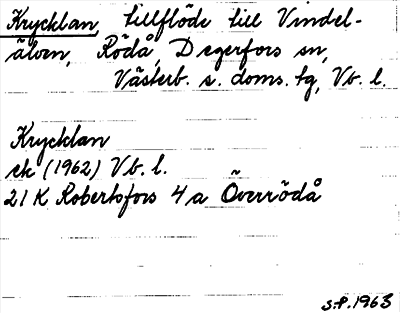 Krycklan, tillflöde till Vindel-
älven, Rödå, Degerfors sn,
Västerb. s. doms. tg, Vb. l.
Krycklan
ek (1962) Vb. l.
21 K Robertsfors 4 a Överrödå
S.P. 1963